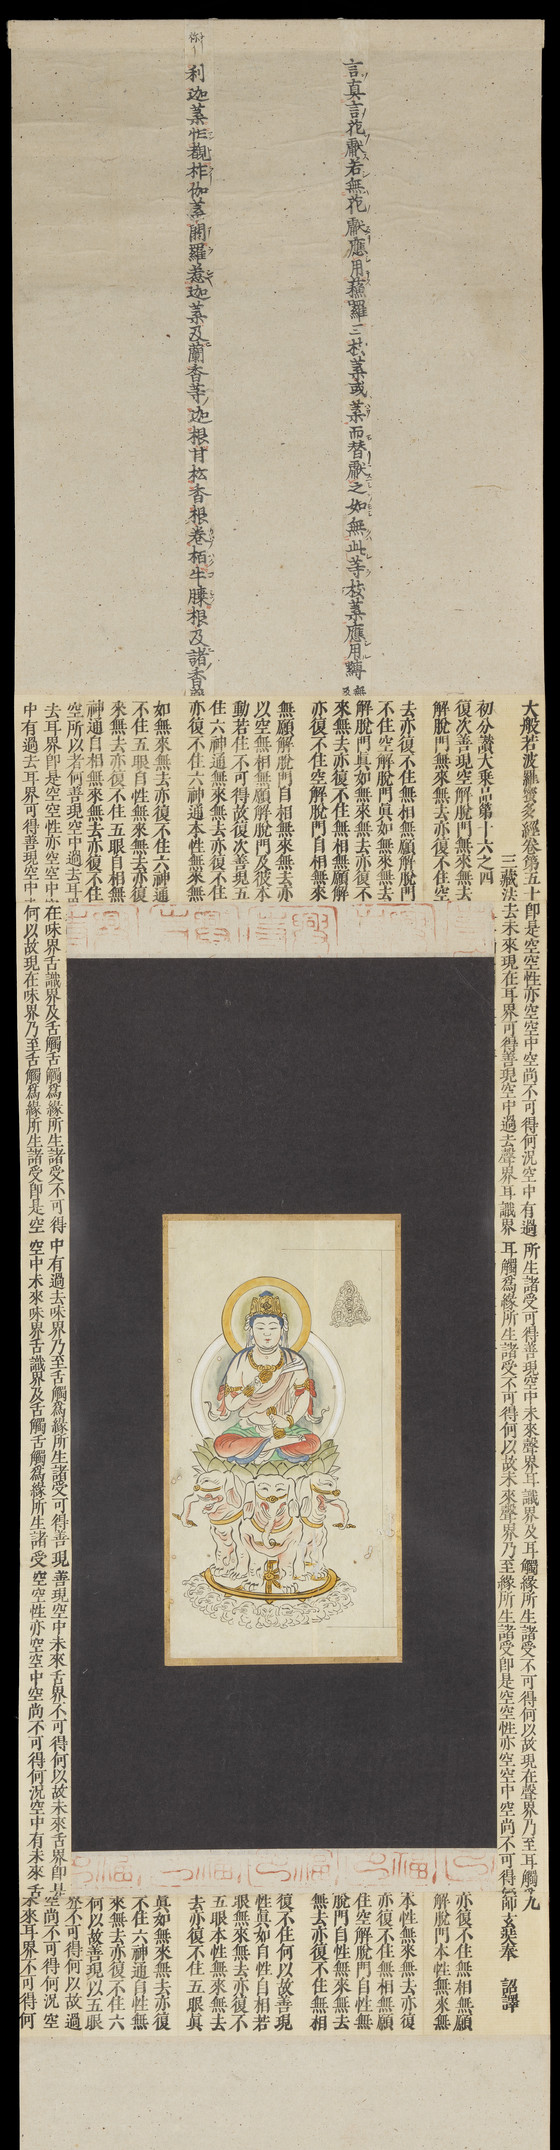 言真言花獻若無花獻應用蘓羅三枝葉或葉而替獻之如無此等枝葉應用
利迦葉性覩柞伽葉開羅惹迦葉及蘭香等迦根甘松香根卷栢牛膝根及諸香
大般若波羅蜜多經卷第五十
三藏法
初分讚大乘品第十六之四
復次善現空解脫門無來無去
解脫門無來無去亦復不住空
去亦復不住無相無願解脫門
不住空解脫門真如無來無去
解脫門真如無來無去亦復不
來無去亦復不住無相無願解
亦復不住空解脫門自相無來
無願解脫門自相無來無去亦
以空無相無願解脫門及彼本
動若住不可得故復次善現五
住六神通無來無去亦復不住
亦復不住六神通本性無來無
如無來無去亦復不住六神通
不住五眼自性無來無去亦復
來無去亦復不住五眼自相無
神通自相無來無去亦復不住
空所以者何善現空中過去耳
去耳界即是空空性亦空空中
中有過去耳界可得善現空中
即是空空性亦空空中空尚不可得何況空中有過
去未來現在耳界可得善現空中過去聲界耳識界
所生諸受可得善現空中未來聲界耳識界及耳觸
耳觸為緣所生諸受不可得何以故未來聲界乃至
緣所生諸受不可得何以故現在聲界乃至耳觸
緣所生諸受即是空空性亦空空中空尚不可得
在味界舌識界及舌觸舌觸為緣所生諸受不可得
何以故現在味界乃至舌觸為緣所生諸受即是空
中有過去味界乃至舌觸為緣所生諸受可得善現
空中未來味界舌識界及舌觸舌觸為緣所生諸受
善現空中未來舌界不可得何以故未來舌界即是
空空性亦空空中空尚不可得何況空中有未來舌
九
師玄奘奉 詔譯
亦復不住無相無願
解脫門本性無來無
本性無來無去亦復
亦復不住無相無願
住空解脫門自性無
脫門自性無來無去
無去亦復不住無相
復不住何以故善現
性真如自性自相若
眼無來無去亦復不
五眼本性無來無去
去亦復不住五眼真
真如無來無去亦復
不住六神通自性無
來無去亦復不住六
何以故善現以五眼
界不可得何以故過
空尚不可得何況空
未來耳界不可得何